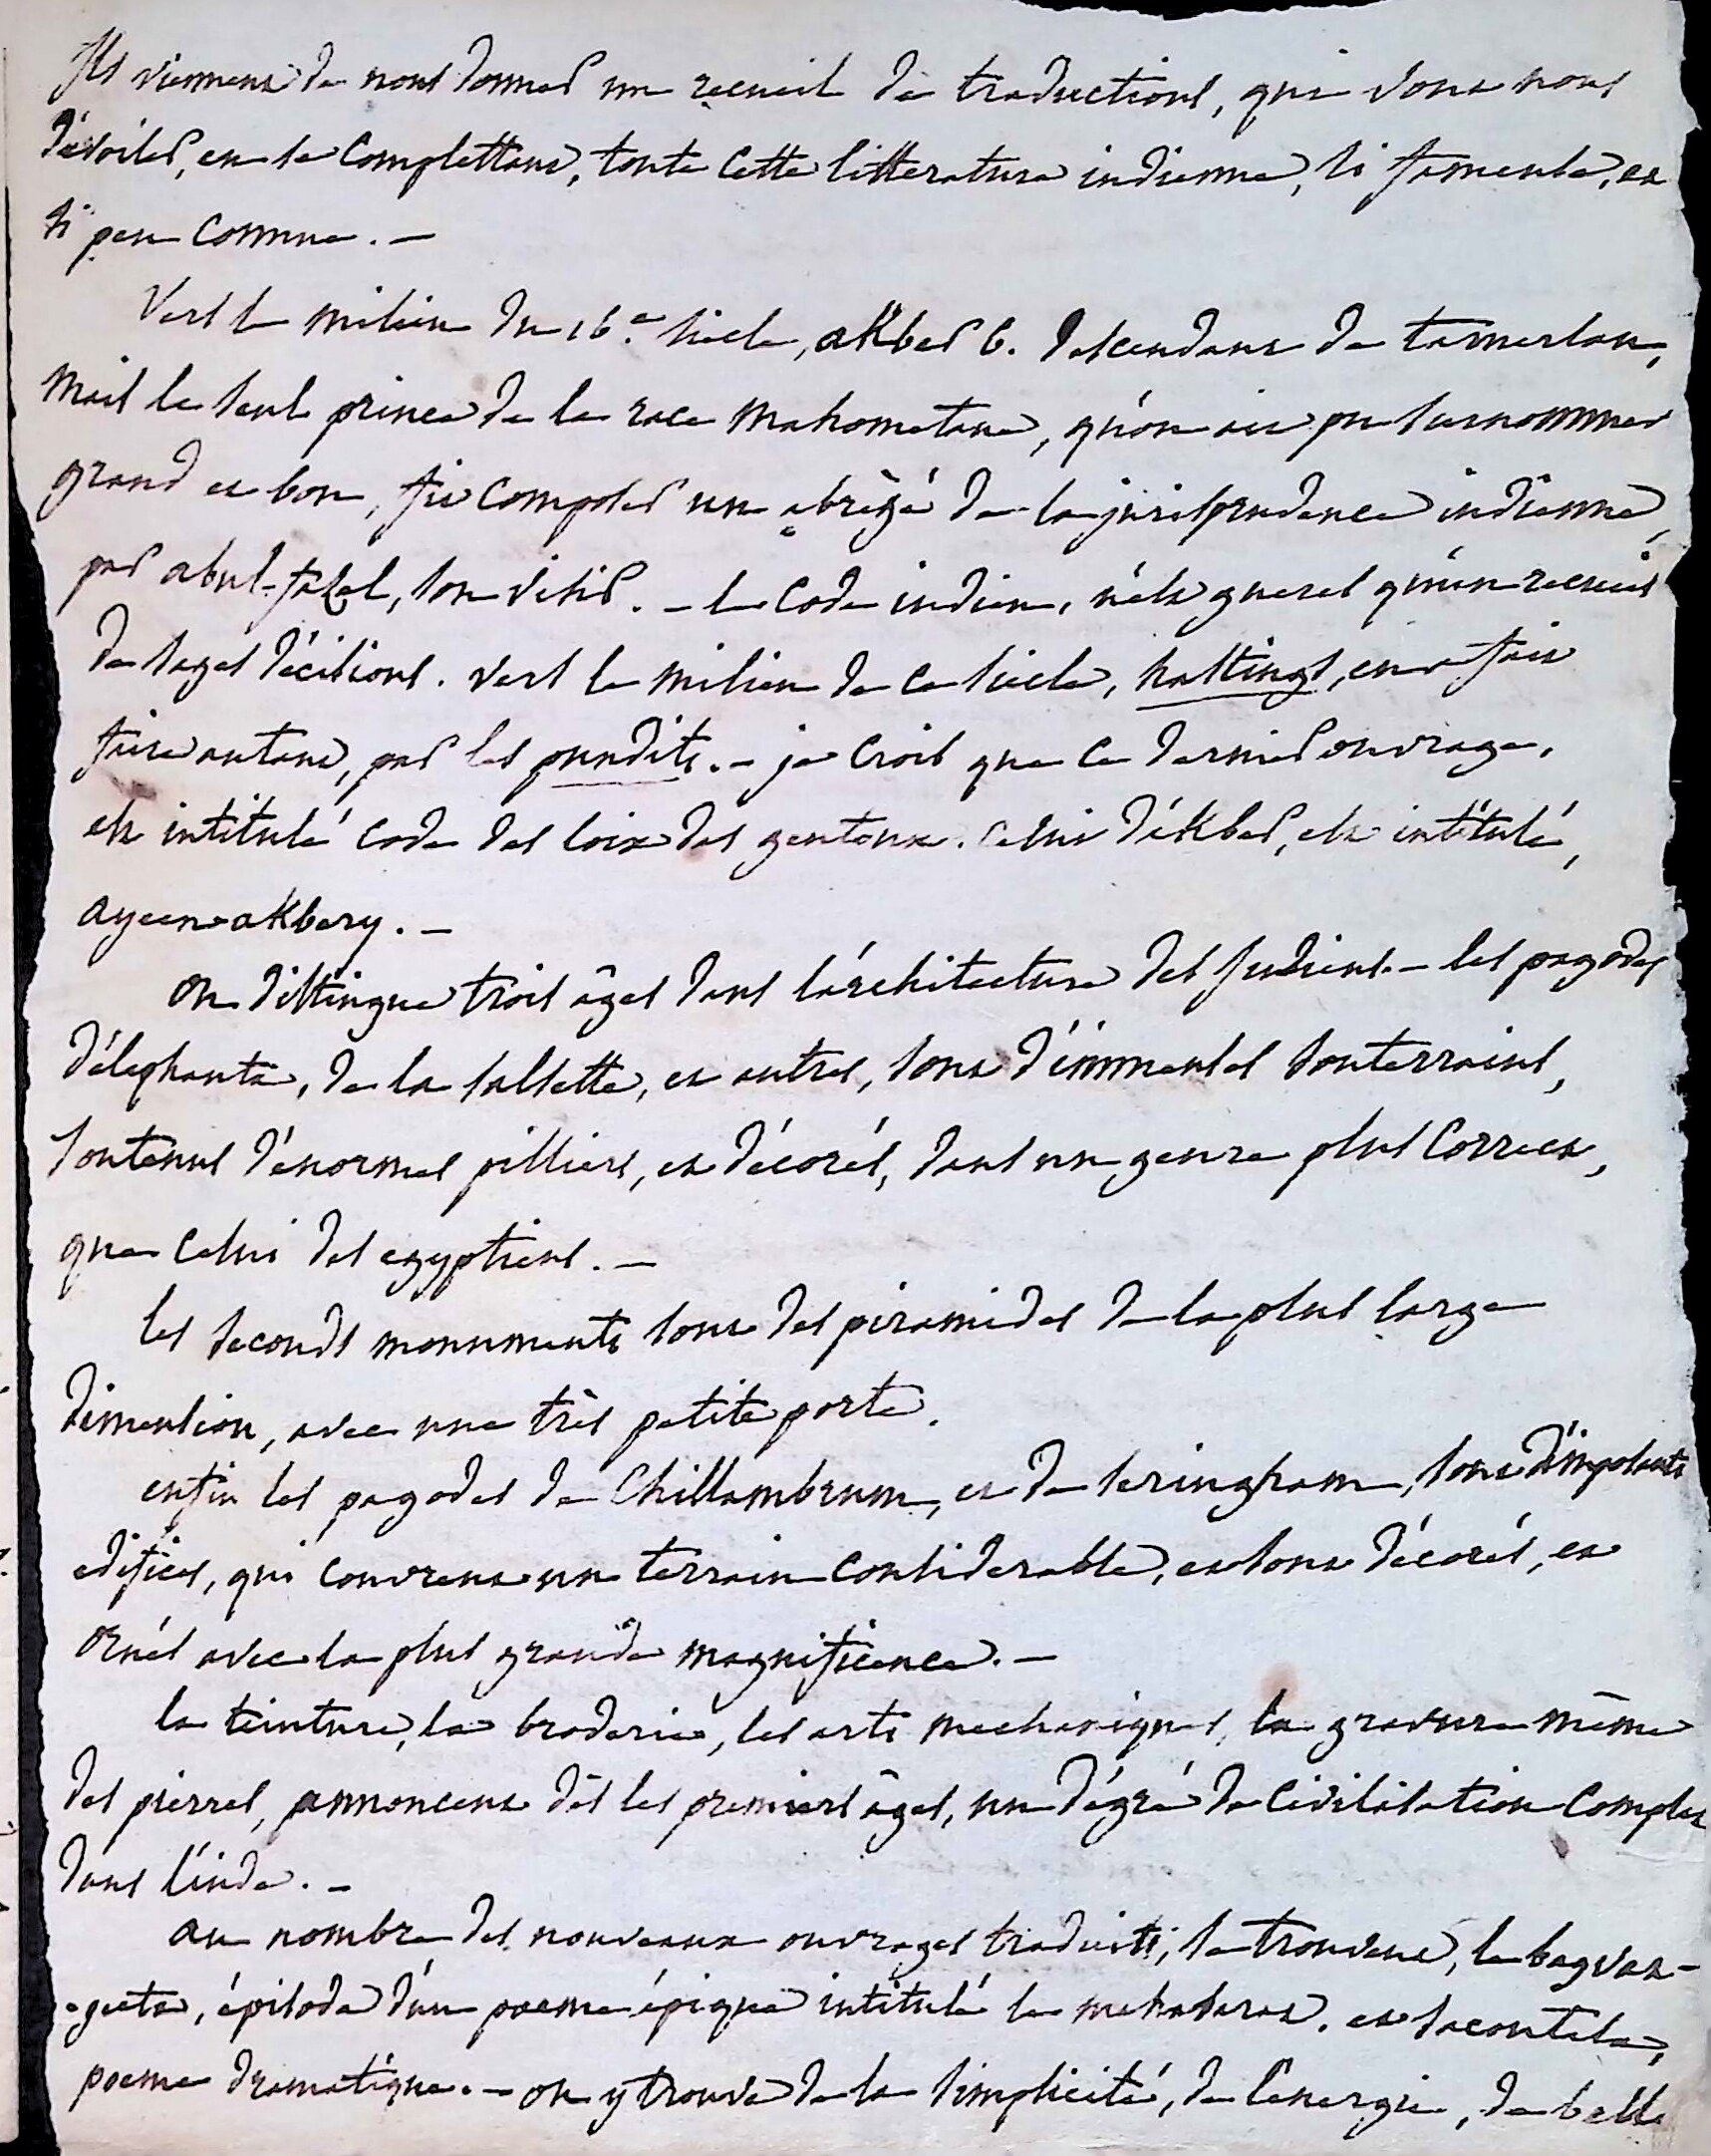 Ils viennent de nous donner un recueil de traductions, qui vont nous
dévoiler, en se complettant, toute cette litterature indienne, si fameuse, et
si peu connue. —
Vers le milieu du 16.e siecle, akber 6. descendant de tamerlan,
mais le seul prince de la race mahometane, qu'on ait pu surnommer
grand et bon, fit composer un abrégé de la jurisprudence indienne,
par abul-fazel, son visir. — le code indien, n'est gueres qu'un recueil
de sages décisions. vers le milieu de ce siecle, hastings, en a fait
faire autant, par les pundits. — je crois que ce dernier ouvrage,
est intitulé code des loix des gentoux. celui d'ékber, est intitulé,
ayeen-akbery. —
On distingue trois âges dans l'architecture des Indiens. — les pagodes
d'élephanta, de la salsette, et autres, sont d'immenses souterrains,
soutenus d'énormes pilliers, et décorés, dans un genre plus correct,
que celui des egyptiens. —
les seconds monuments sont des piramides de la plus large
dimension, avec une très petite porte.
enfin les pagodes de Chillambrum, et de seringham, sont d'imposants
edifices, qui couvrent un terrain considerable, et sont décorés, et
ornés avec la plus grande magnificence. —
la teinture, la broderie, les arts mechaniques, la gravure même
des pierres, annoncent dès les premiers âges, un dégré de civilisation complet
dans l'inde. —
au nombre des nouveaux ouvrages traduits, se trouvent, le bagvat-
-geeta, épisode d'un poeme épique intitulé le mahabarat. et sacontala,
poeme dramatique. — on y trouve de la simplicité, de l'energie, de belle